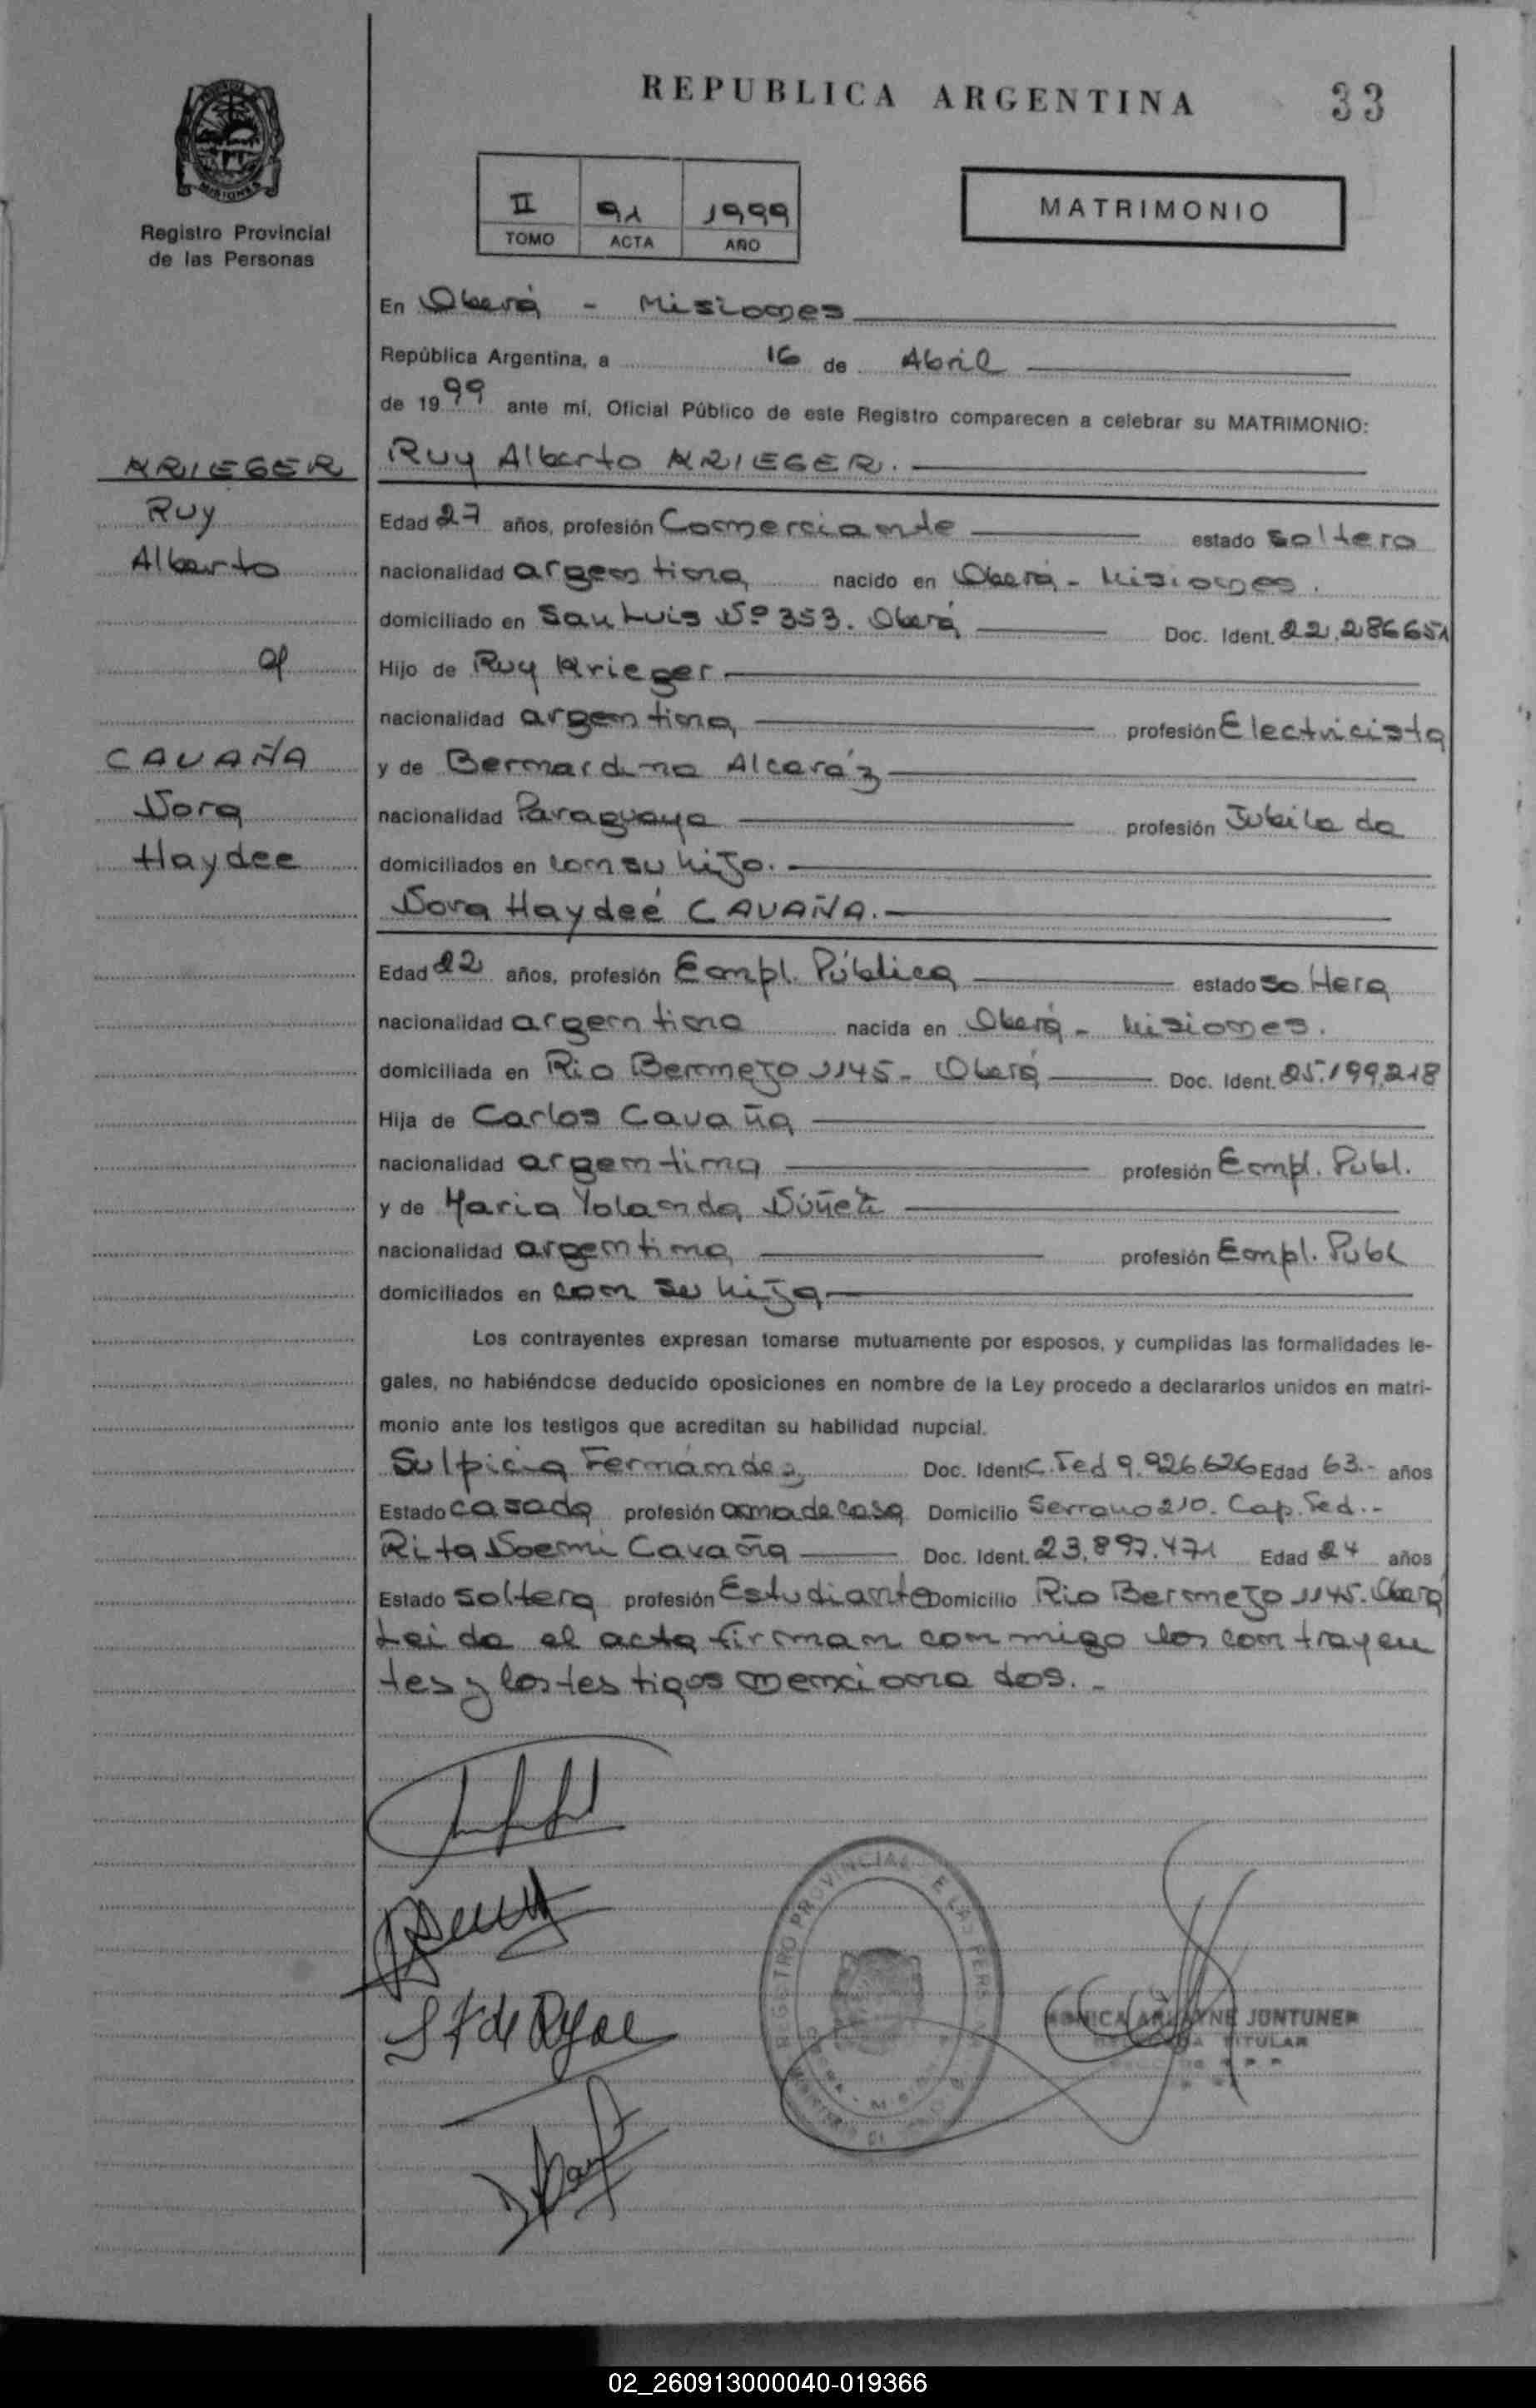 REPUBLICA ARGENTINA
33
Registro Provincial
de las Personas
II 91 1999
TOMO ACTA AÑO
MATRIMONIO
En Oberá - Misiones
República Argentina, a 16 de Abril
de 1999 ante mí, Oficial Público de este Registro comparecen a celebrar su MATRIMONIO:
KRIEGER
Ruy
Alberto
CAVAÑA
Nora
Haydee
Ruy Alberto KRIEGER.
Edad 27 años, profesión Comerciante estado soltero
nacionalidad argentina nacido en Oberá - Misiones.
domiciliado en San Luis Nº 353. Oberá Doc. Ident. 22.286651
Hijo de Ruy Krieger
nacionalidad argentina profesión Electricista
y de Bernardina Alcaráz
nacionalidad Paraguaya profesión Jubilada
domiciliados en con su hijo.
Nora Haydeé CAVAÑA.
Edad 22 años, profesión Empl. Pública estado soltera
nacionalidad argentina nacida en Oberá - Misiones.
domiciliada en Rio Bermejo 1145 - Oberá Doc. Ident. 25.199.218
Hija de Carlos Cavaña
nacionalidad argentina profesión Empl. Publ.
y de Maria Yolanda
nacionalidad argentina profesión Empl. Publ
domiciliados en con su hija
Los contrayentes expresan tomarse mutuamente por esposos, y cumplidas las formalidades le-
gales, no habiéndose deducido oposiciones en nombre de la Ley procedo a declararlos unidos en matri-
monio ante los testigos que acreditan su habilidad nupcial.
Sulpicia Fernández Doc. Ident C. Fed 9.926.626 Edad 63.- años
Estado casada profesión ama de casa Domicilio Serrano 210. Cap. Fed.-
Rita Noemi Cavaña Doc. Ident. 23.897.471 Edad 24 años
Estado soltera profesión Estudiante Domicilio Rio Bermejo 1145. Oberá
Leida el acta firman conmigo los contrayen
tes y los testigos mencionados.-
REGISTRO PROVINCIAL DE LAS PERS
JONTUNER
TITULAR
02_260913000040-019366